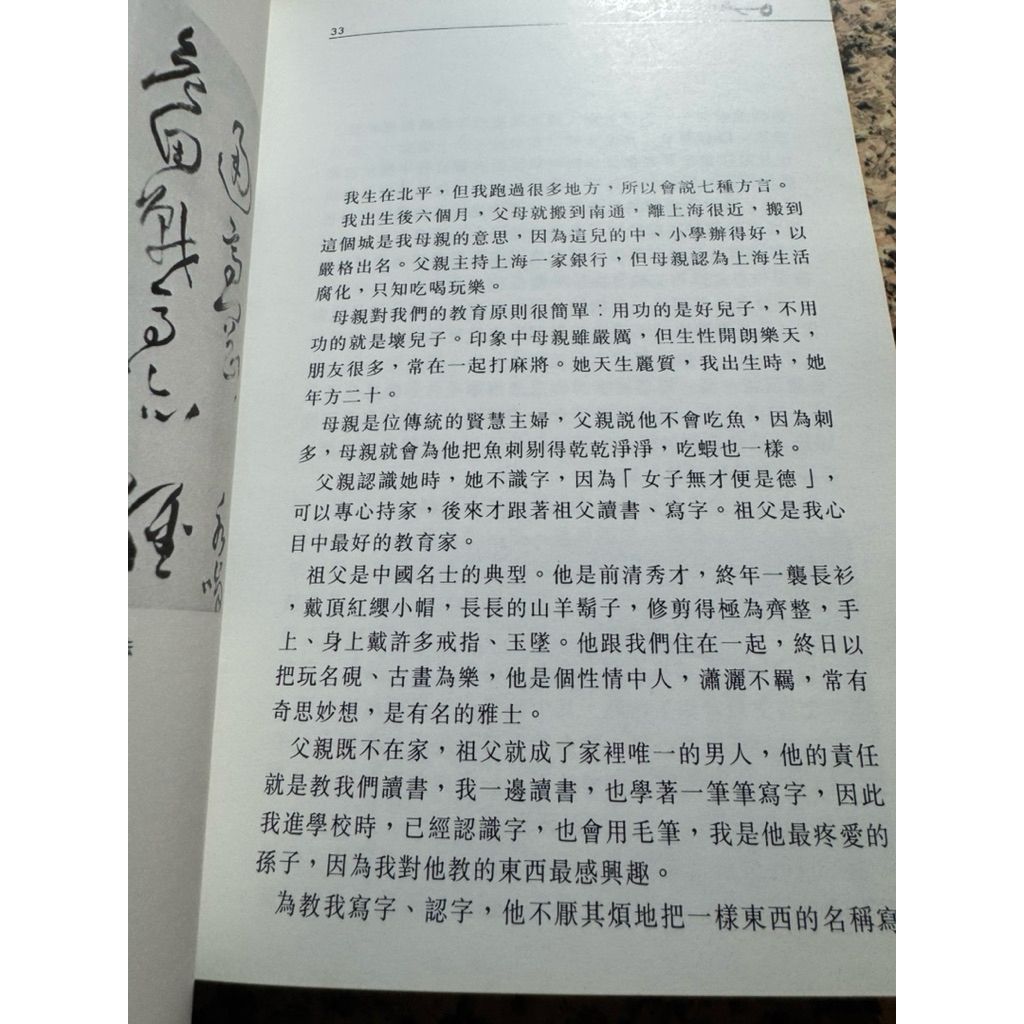 33
我生在北平，但我跑過很多地方，所以會説七種方言。
我出生後六個月，父母就搬到南通，離上海很近，搬到
這個城是我母親的意思，因為這兒的中、小學辦得好，以
嚴格出名。父親主持上海一家銀行，但母親認為上海生活
腐化，只知吃喝玩樂。
母親對我們的教育原則很簡單：用功的是好兒子，不用
功的就是壞兒子。印象中母親雖嚴厲，但生性開朗樂天，
朋友很多，常在一起打麻將。她天生麗質，我出生時，她
年方二十。
母親是位傳統的賢慧主婦，父親説他不會吃魚，因為刺
多，母親就會為他把魚刺剔得乾乾淨淨，吃蝦也一樣。
父親認識她時，她不識字，因為「女子無才便是德」，
可以專心持家，後來才跟著祖父讀書、寫字。祖父是我心
目中最好的教育家。
祖父是中國名士的典型。他是前清秀才，終年一襲長衫
，戴頂紅纓小帽，長長的山羊鬍子，修剪得極為齊整，手
上、身上戴許多戒指、玉墜。他跟我們住在一起，終日以
把玩名硯、古畫為樂，他是個性情中人，瀟灑不羈，常有
奇思妙想，是有名的雅士。
父親既不在家，祖父就成了家裡唯一的男人，他的責任
就是教我們讀書，我一邊讀書，也學著一筆筆寫字，因此
我進學校時，已經認識字，也會用毛筆，我是他最疼愛的
孫子，因為我對他教的東西最感興趣。
為教我寫字、認字，他不厭其煩地把一樣東西的名稱寫